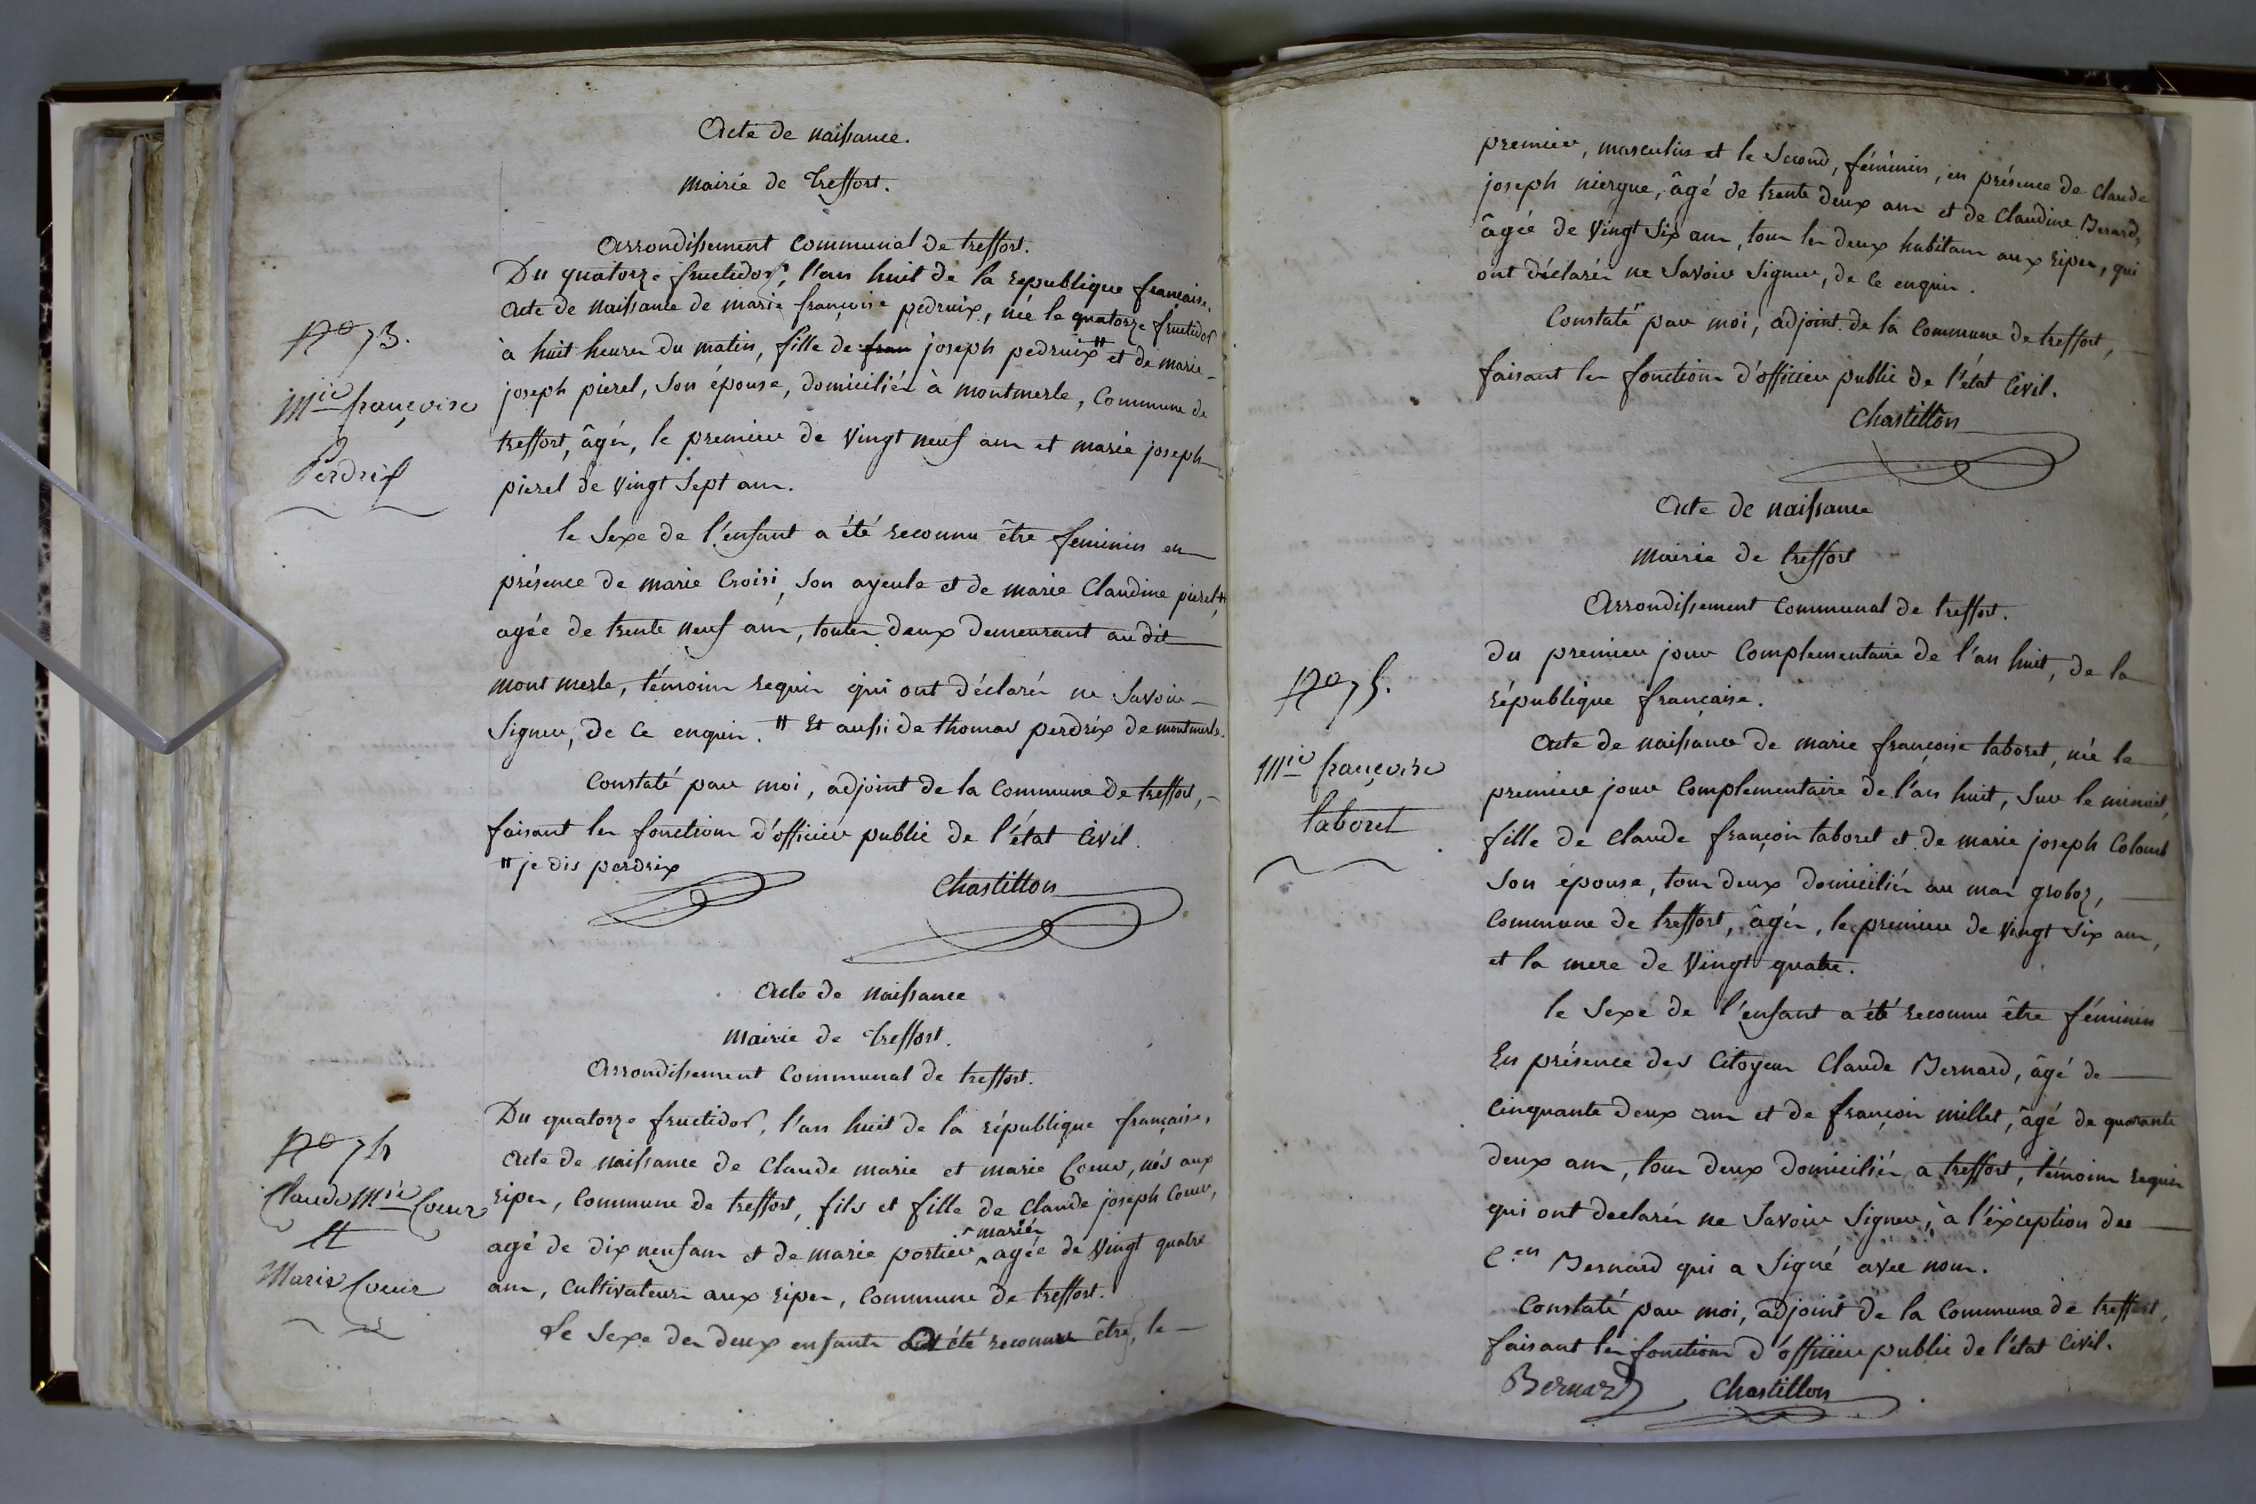 Acte de naissance.
Mairie de Treffort.
Arrondissement Communal de treffort.
Du quatorze fructidor, l'an huit de la republique française.
No 73.
Mie françoise
Perdrix
Acte de naissance de marie françoise pedruix, née le quatorze fructidor
à huit heures du matin, fille de fran joseph pedruix # et de marie-
joseph pierel, son épouse, domiciliés à montmerle, Commune de
treffort, âgés, le premier de vingt neuf ans et marie joseph
pierel de vingt sept ans.
le Sexe de l'enfant a été reconnu être feminin en
présence de marie Croisi, son ayeule et de marie Claudine pierel #
agée de trente neuf ans, toutes deux demeurant audit
mont merle, témoins requis qui ont déclarés ne savoir
signer, de ce enquis. # Et aussi de thomas perdrix de montmerle.
Constaté par moi, adjoint de la Commune de treffort,
faisant les fonctions d'officier public de l'état Civil.
# je dis perdrix
Chastillon
Acte de naissance
Mairie de Treffort.
Arrondissement Communal de treffort.
No 74
Claude Mie Coeur
et
Marie Coeur
Du quatorze fructidor, l'an huit de la république française,
Acte de naissance de Claude marie et marie Coeur, nés aux
ripes, Commune de treffort, fils et fille de Claude joseph Coeur,
agé de dix neuf ans et de marie portier mariés agée de vingt quatre
ans, Cultivateurs aux ripes, Commune de treffort.
Le Sexe des deux enfants ont été reconnu être, le
premier, masculin et le second, féminin, en présence de Claude
joseph niergue, âgé de trente deux ans et de Claudine Berard,
âgée de vingt six ans, tous les deux habitans aux ripes, qui
ont déclarés ne savoir signer, de ce enquis.
Constaté par moi, adjoint de la Commune de treffort,
faisant les fonctions d'officier public de l'état Civil.
Chastillon
Acte de naissance
Mairie de treffort
Arrondissement Communal de treffort.
No 75.
Mie françoise
taboret
du premier jour Complementaire de l'an huit, de la
république française.
Acte de naissance de marie françoise taboret, née le
premier jour Complementaire de l'an huit, sur le minuit,
fille de Claude françois taboret et de marie joseph Colomb
son épouse, tous deux domiciliés au mas groboz,
Commune de treffort, âgés, le premier de vingt six ans,
et la mere de vingt quatre.
le Sexe de l'enfant a été reconnu être féminin
En présence des Citoyens Claude Bernard, âgé de
cinquante deux ans et de françois millet, âgé de quarante
deux ans, tous deux domiciliés a treffort, témoins requis
qui ont declarés ne savoir signer, à l'éxception du
Cen Bernard qui a signé avec nous.
Constaté par moi, adjoint de la Commune de treffort,
faisant les fonctions d'officier public de l'état Civil.
Bernard Chastillon